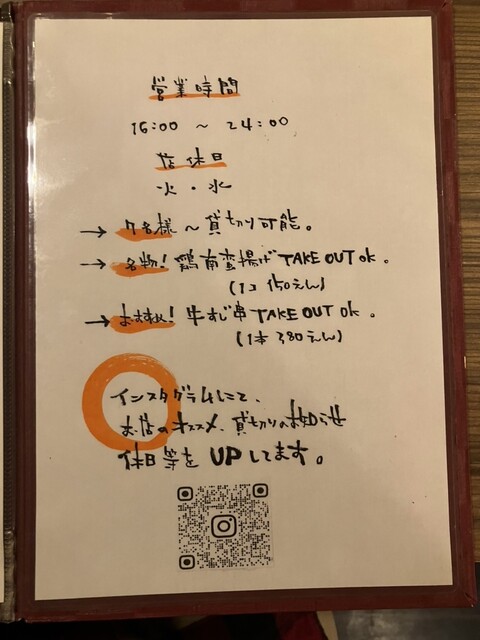 営業時間
16:00 〜 24:00
店休日
火・水
→ 7名様〜貸切り可能。
→ 名物!鶏南蛮揚げ TAKE OUT ok。
(1コ 150えん)
→ おすすめ!牛すじ串 TAKE OUT ok。
(1本 380えん)
インスタグラムにて、
お店のオススメ、貸切りのお知らせ
休日等を UP してます。